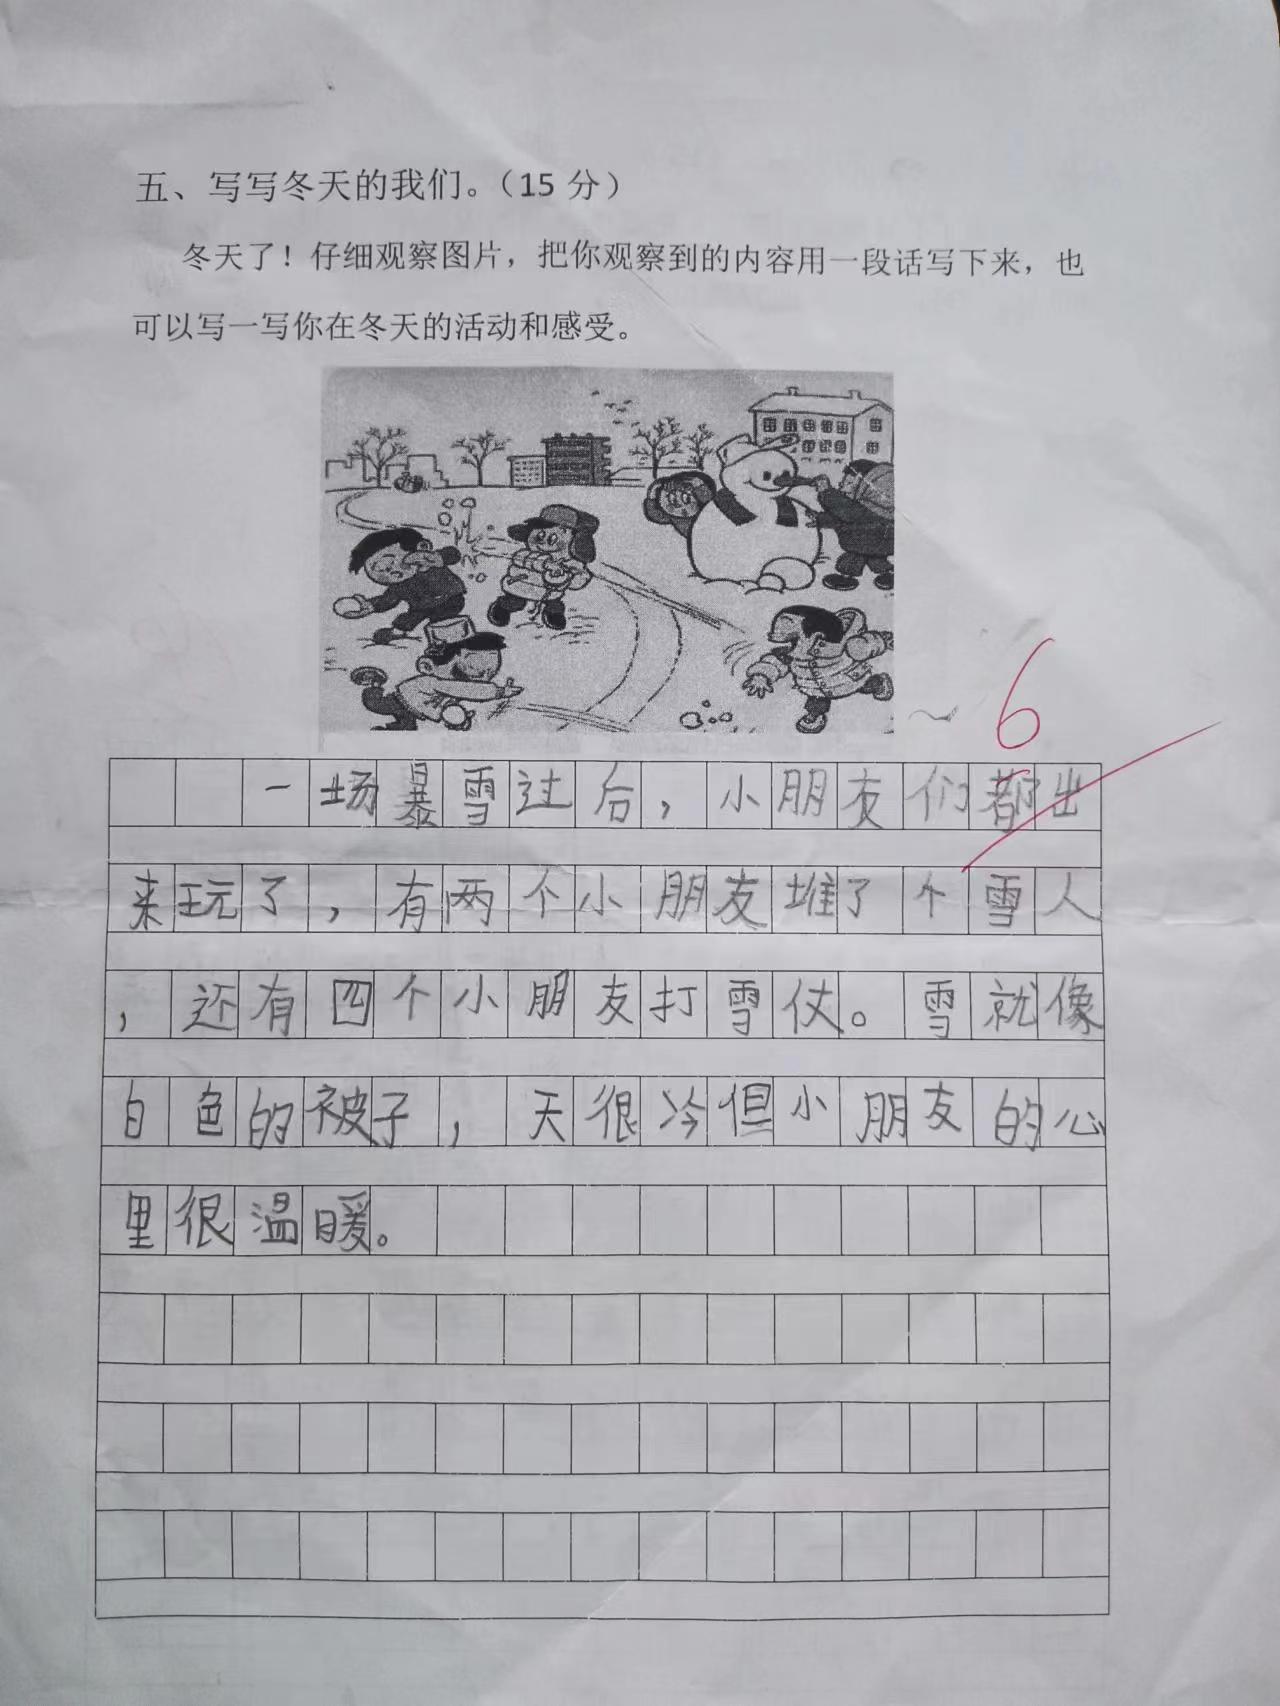 五、写写冬天的我们。（15 分）
冬天了！仔细观察图片，把你观察到的内容用一段话写下来，也
可以写一写你在冬天的活动和感受。
6
一场暴雪过后，小朋友们都出
来玩了，有两个小朋友堆了个雪人
，还有四个小朋友打雪仗。雪就像
白色的被子，天很冷但小朋友的心
里很温暖。